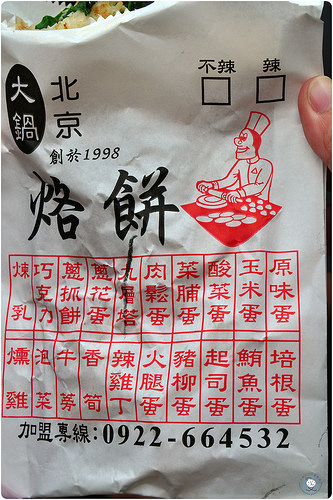 大鍋
北京
創於1998
烙餅
不辣 辣
原味蛋
玉米蛋
酸菜蛋
菜脯蛋
肉鬆蛋
九層塔
蔥花蛋
蔥抓餅
巧克力
煉乳
培根蛋
鮪魚蛋
起司蛋
豬柳蛋
火腿蛋
辣雞丁
香筍
牛蒡
泡菜
燻雞
加盟專線:0922-664532